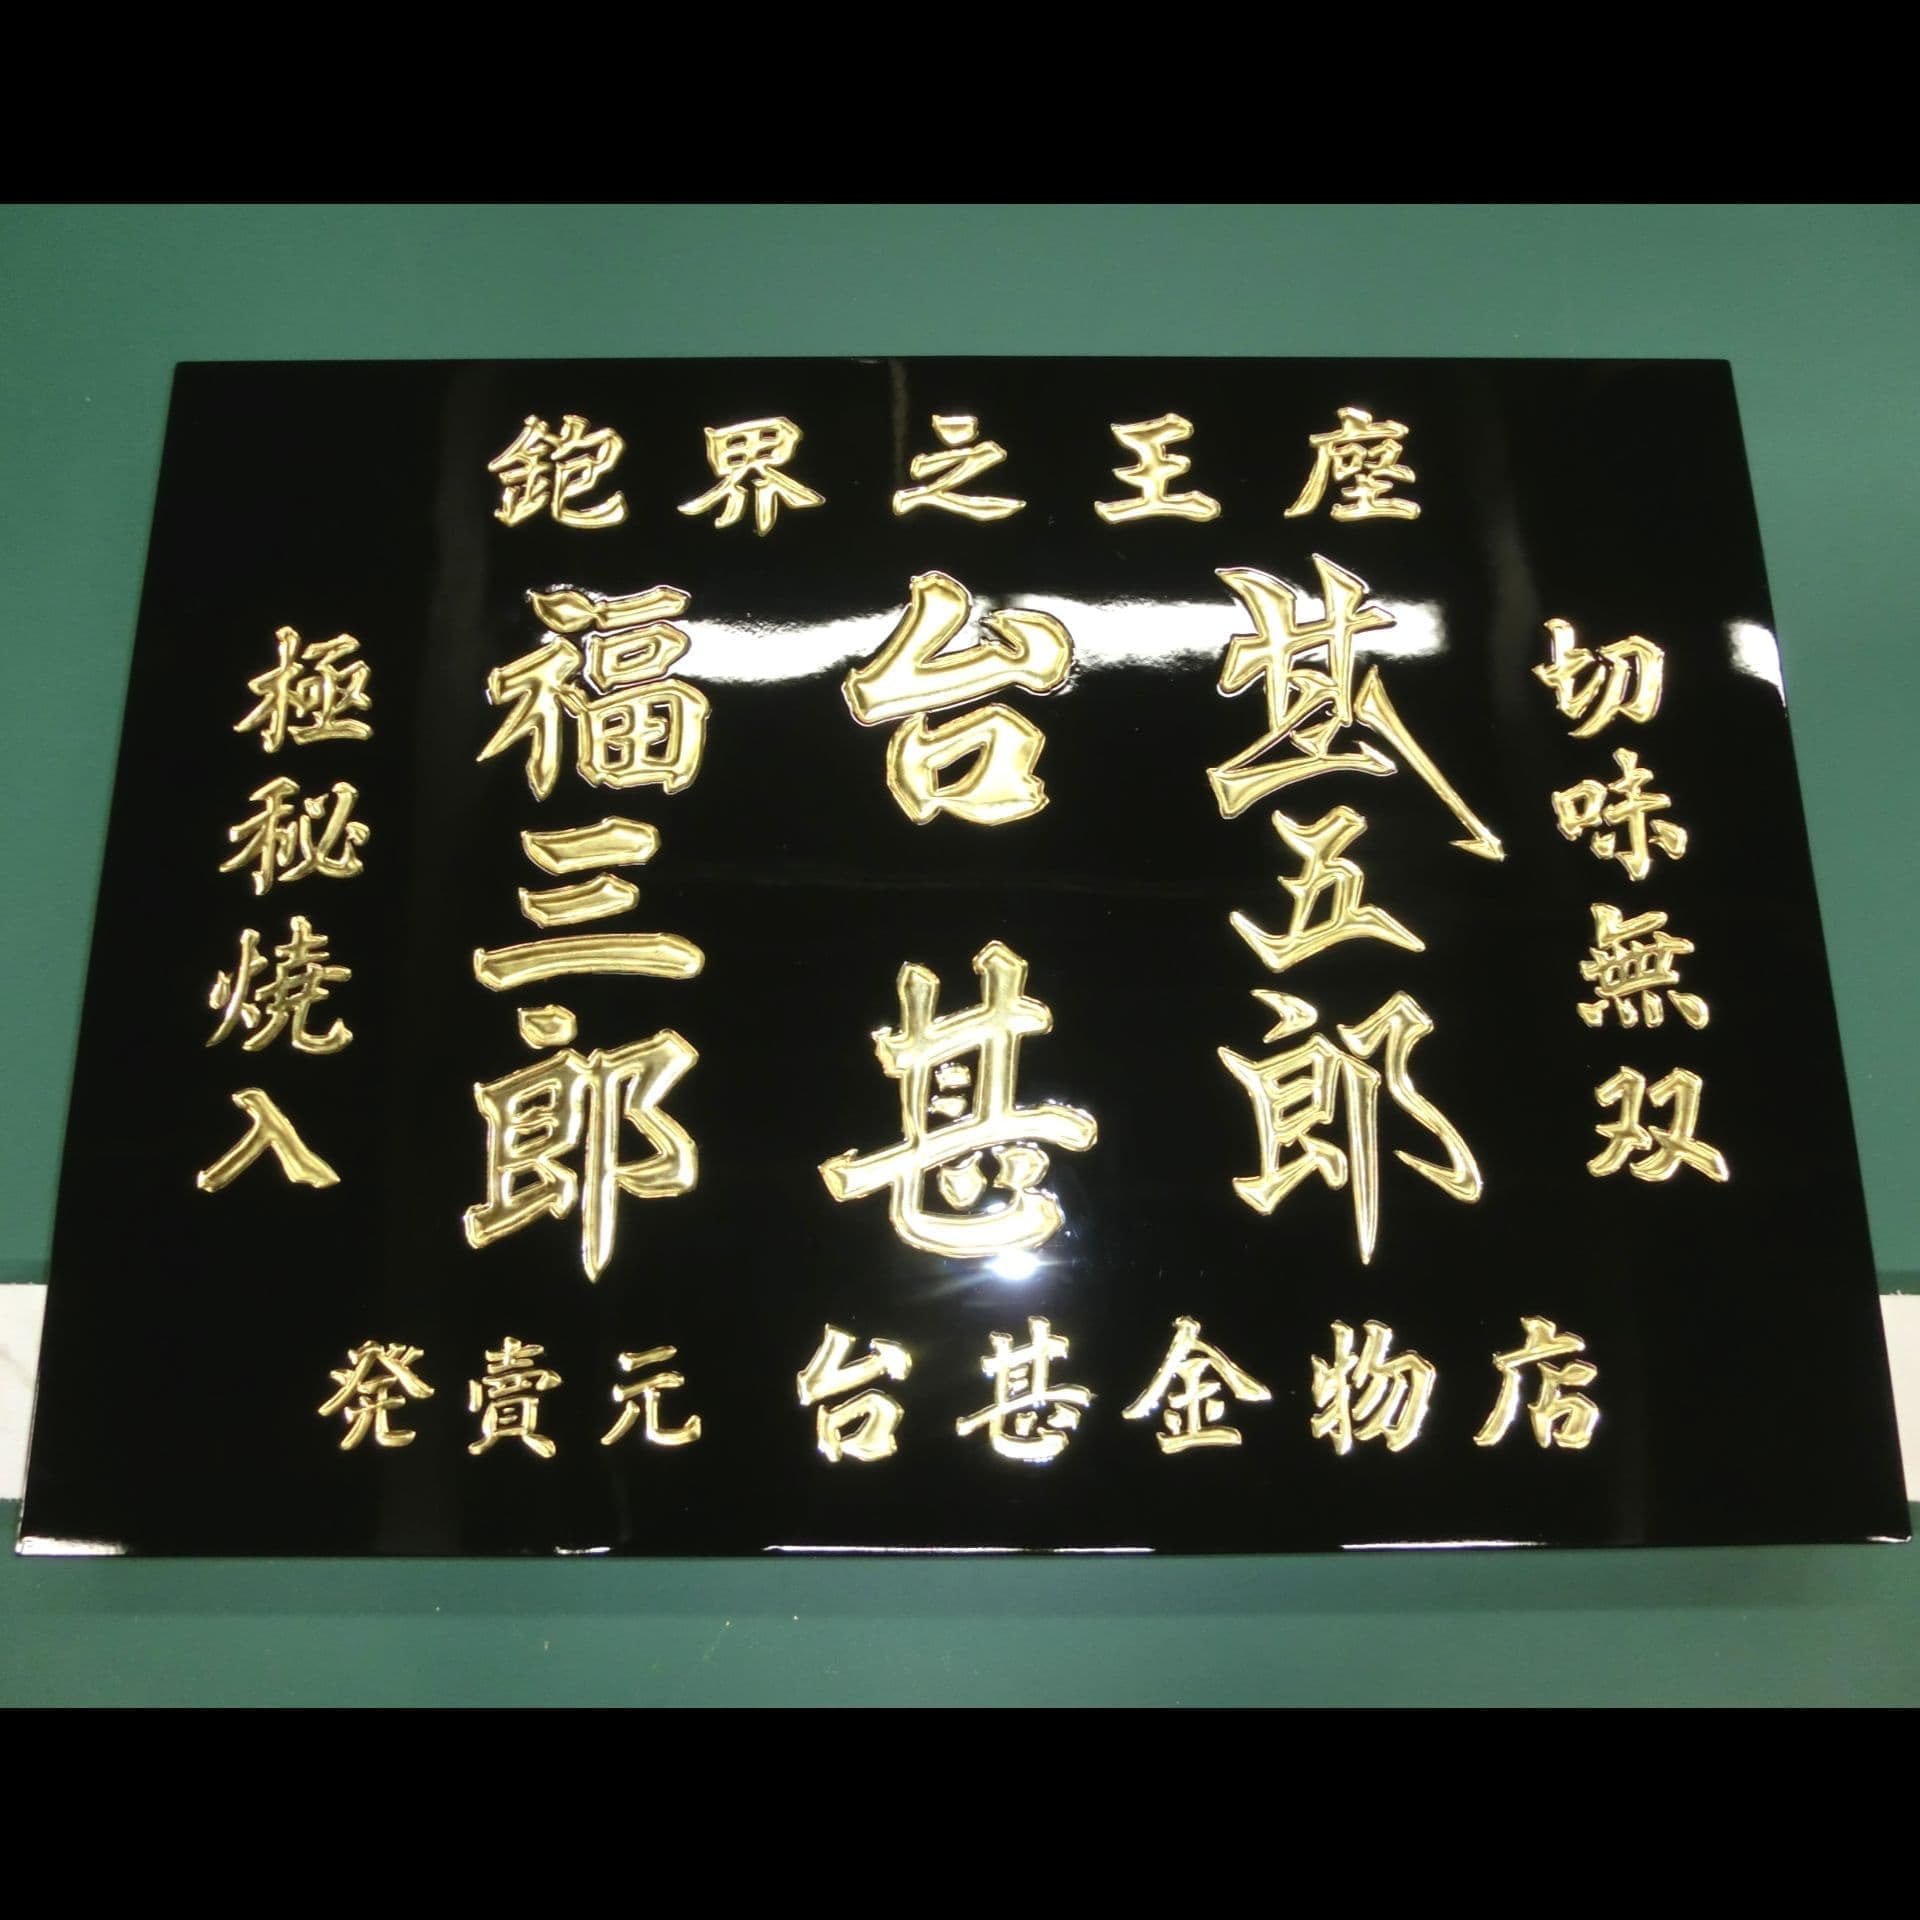 鉋界之王座
切味無双
基五郎
台甚
福三郎
極秘焼入
発賣元 台甚金物店